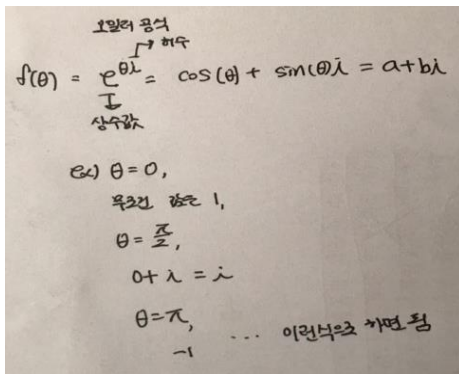 오일러 공식
허수
f(θ) = e^{θi} = cos(θ) + sin(θ)i = a+bi
상수값
ex) θ=0,
무조건 값은 1,
θ = π/2,
0+i = i
θ=π,
-1 ... 이런식으로 하면 됨